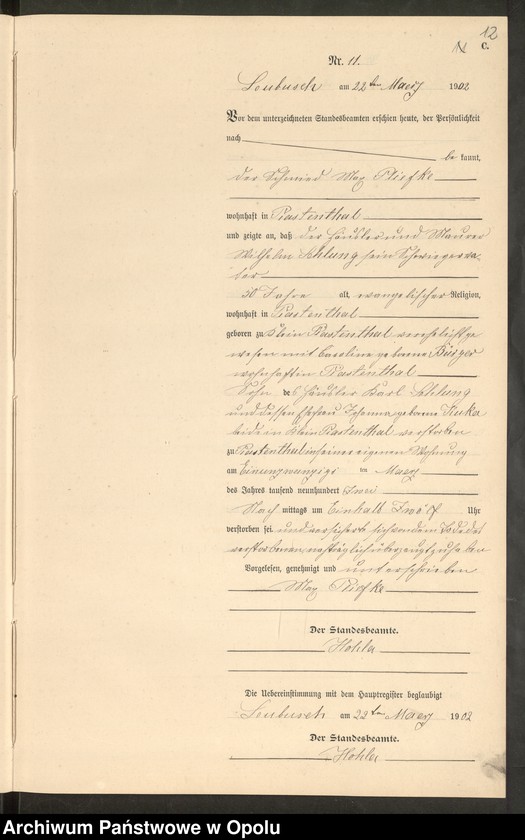 12
C.
Nr. 11.
Leubusch am 22ten Maerz 1902
Vor dem unterzeichneten Standesbeamten erschien heute, der Persönlichkeit
nach
be kannt,
der Schmied Max
wohnhaft in Piastenthal
und zeigte an, daß der Häusler und Maurer
Wilhelm Schlung sein Schwiegerva-
ter
50 Jahre alt, evangelischer Religion,
wohnhaft in Piastenthal
geboren zu Klein Piastenthal verehelicht ge
wesen mit Caroline geborene Bürger
wohnhaft in Piastenthal
Sohn des Häusler Karl Schlung
und dessen Ehefrau geborene
beide in Klein Piastenthal verstorben
zu Piastenthal in seiner eigenen Wohnung
am Einundzwanzigs ten Maerz
des Jahres tausend neunhundert zwei
Nach mittags um Einhalb Zwölf Uhr
verstorben sei und versichert sich von dem Tode des
Verstorbenen überzeugt zu haben
Vorgelesen, genehmigt und unterschrieben
Max
Der Standesbeamte.
Hohler
Die Uebereinstimmung mit dem Hauptregister beglaubigt
Leubusch am 22ten Maerz 1902
Der Standesbeamte.
Hohler
Archiwum Państwowe w Opolu